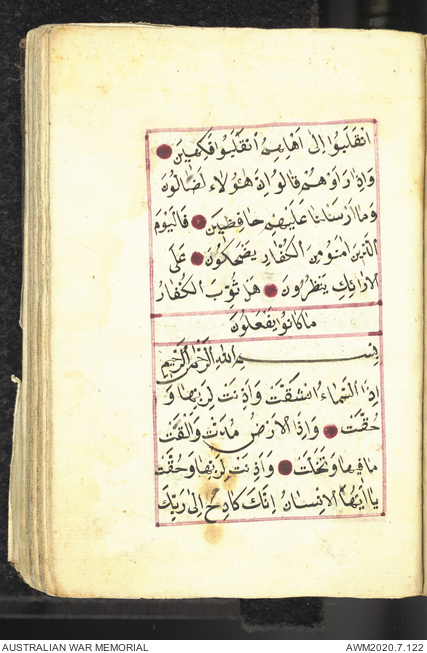 انْقَلَبُوا اِلٰى اَهْلِهِمُ انْقَلَبُوا فَكِهِينَ
وَاِذَا رَاَوْهُمْ قَالُوا اِنَّ هٰؤُلَاءِ لَضَالُّونَ
وَمَا اُرْسِلُوا عَلَيْهِمْ حَافِظِينَ فَالْيَوْمَ
الَّذِينَ اٰمَنُوا مِنَ الْكُفَّارِ يَضْحَكُونَ عَلَى
الْاَرَائِكِ يَنْظُرُونَ هَلْ ثُوِّبَ الْكُفَّارُ
مَا كَانُوا يَفْعَلُونَ
بِسْمِ اللّٰهِ الرَّحْمٰنِ الرَّحِيمِ
اِذَا السَّمَاءُ انْشَقَّتْ وَاَذِنَتْ لِرَبِّهَا وَ
حُقَّتْ وَاِذَا الْاَرْضُ مُدَّتْ وَاَلْقَتْ
مَا فِيهَا وَتَخَلَّتْ وَاَذِنَتْ لِرَبِّهَا وَحُقَّتْ
يَا اَيُّهَا الْاِنْسَانُ اِنَّكَ كَادِحٌ اِلٰى رَبِّكَ
AUSTRALIAN WAR MEMORIAL AWM2020.7.122